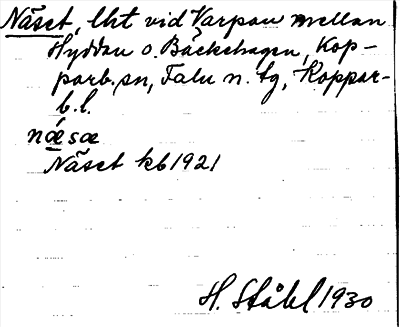 Näset, lht vid Varpan mellan
Hyddan o. Bäckehagen, Kop-
parb. sn, Falu n. tg, Koppar-
b. l.
nǽsæ
Näset kb 1921
H. Ståhl 1930